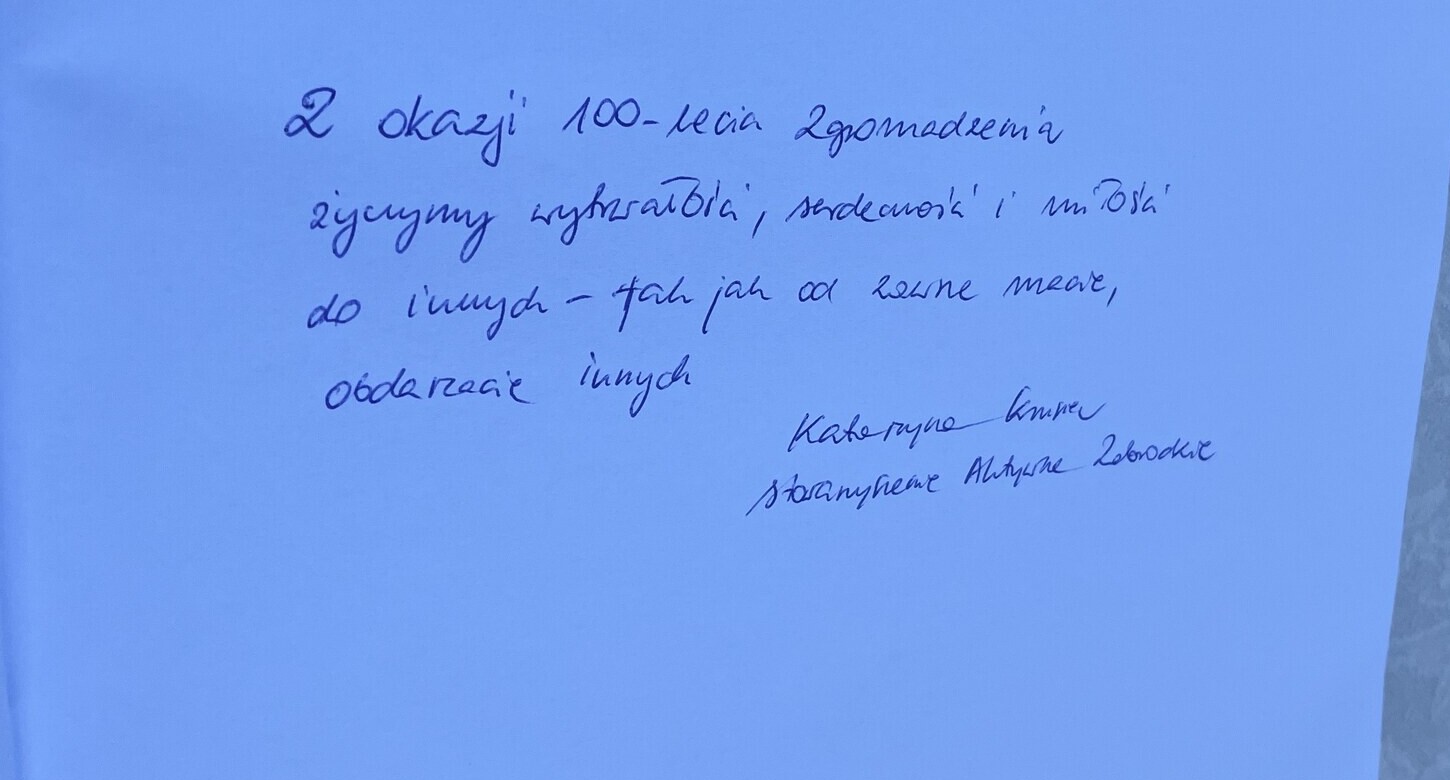 Z okazji 100-lecia Zgromadzenia
życzymy wytrwałości, serdeczność i miłości
do innych – tak jak od zawsze macie,
obdarzacie innych
Katarzyna
Stowarzyszenie Aktywne Zabrodzkie